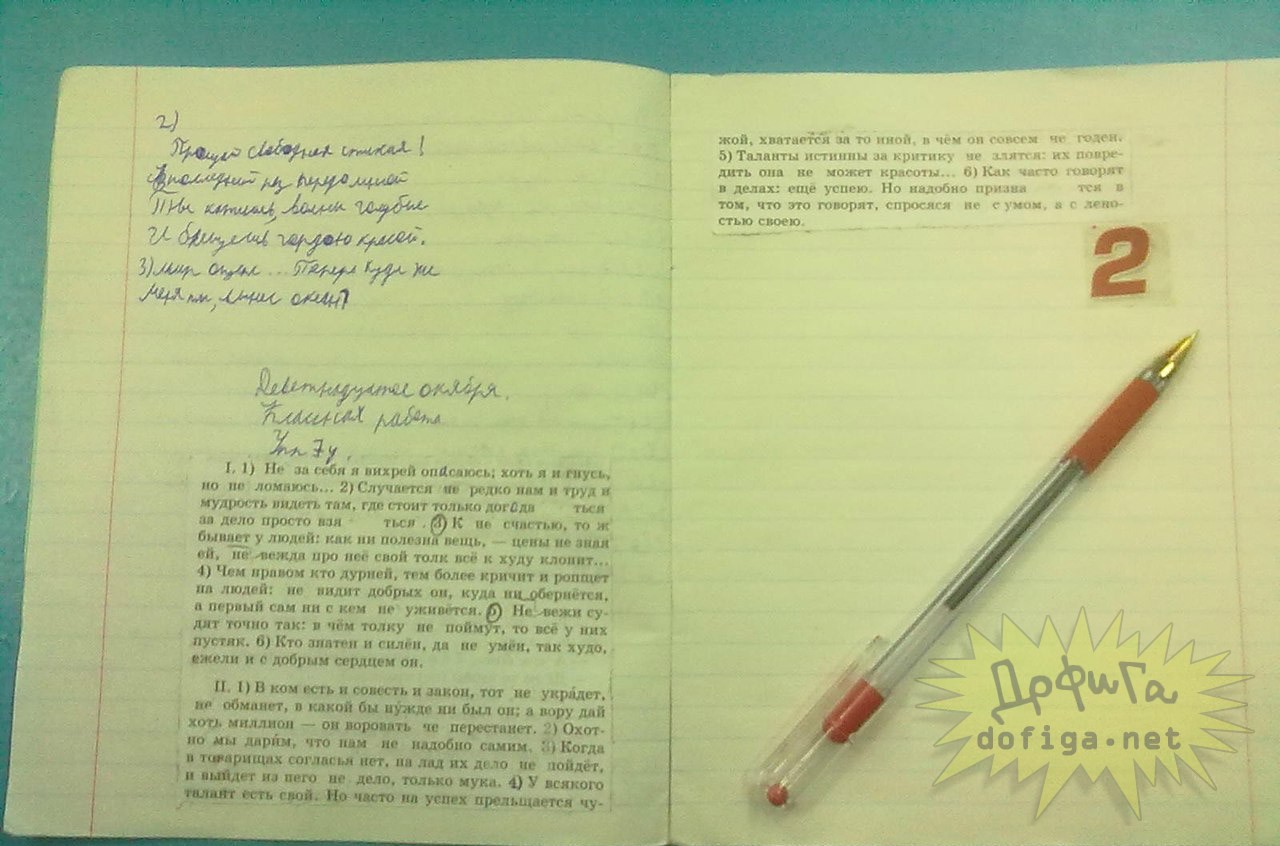 2)
Прощай свободная стихия!
В последний раз передо мной
Ты катишь волны голубые
И блещешь гордою красой.
3) Мир опустел... Теперь куда же
Меня вынес океан?
Деветнадцатое октября.
Классная работа
Упр 7у.
I. 1) Не за себя я вихрей опасаюсь; хоть я и гнусь,
но не ломаюсь... 2) Случается не редко нам и труд и
мудрость видеть там, где стоит только догада ться
за дело просто взя ться. 3) К не счастью, то ж
бывает у людей: как ни полезна вещь, — цены не зная
ей, не вежда про неё свой толк всё к худу клонит...
4) Чем нравом кто дурней, тем более кричит и ропщет
на людей: не видит добрых он, куда ни обернётся,
а первый сам ни с кем не уживётся. 5) Не вежи су-
дят точно так: в чём толку не поймут, то всё у них
пустяк. 6) Кто знатен и силён, да не умён, так худо,
ежели и с добрым сердцем он.
II. 1) В ком есть и совесть и закон, тот не украдет,
не обманет, в какой бы нужде ни был он; а вору дай
хоть миллион — он воровать не перестанет. 2) Охот-
но мы дарим, что нам не надобно самим. 3) Когда
в товарищах согласья нет, на лад их дело не пойдёт,
и выйдет из него не дело, только мука. 4) У всякого
талант есть свой. Но часто на успех прельщается чу-
жой, хватается за то иной, в чём он совсем не годен.
5) Таланты истинны за критику не злятся: их повре-
дить она не может красоты... 6) Как часто говорят
в делах: ещё успею. Но надобно призна тся в
том, что это говорят, спросяся не с умом, а с лено-
стью своею.
2
ДофиГа
dofiga.net